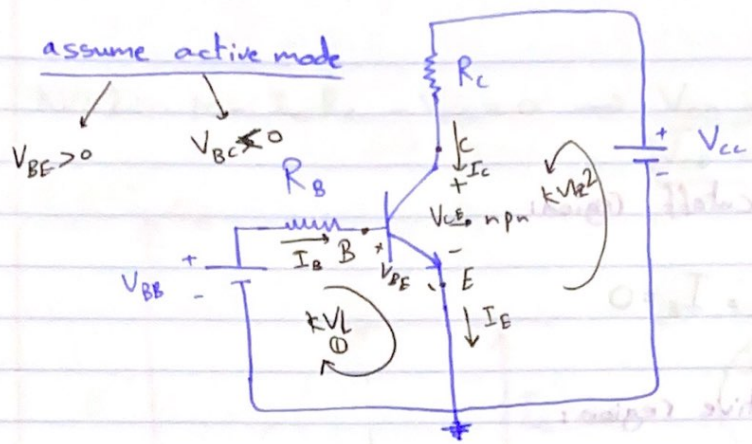 assume active mode
V_BE > 0
V_BC < 0
R_C
C
I_C
+
V_CC
+
-
KVL2
V_CE
npn
-
R_B
I_B
B
+
V_BE
-
E
I_E
V_BB
+
-
KVL
①